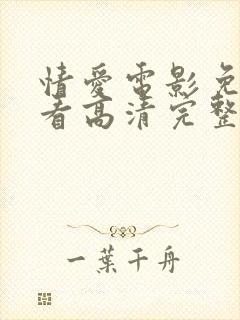 情爱电影免
看高清完整
一葉千舟